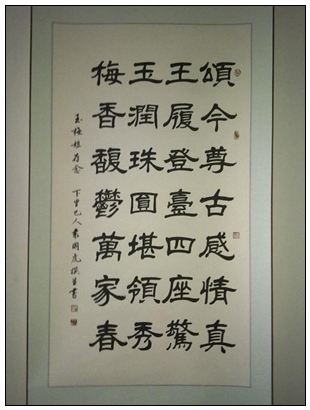 頌今尊古感情真
王履登臺四座驚
玉潤珠圓堪領秀
梅香馥鬱萬家春
玉梅雅存念 丁
巴人袁國虎撰並書